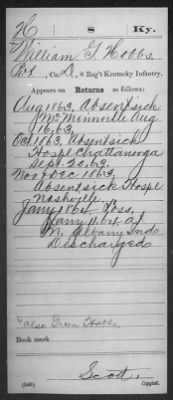 H 8 Ky.
William G. Hobbs
Pvt, Co. D, 8 Reg't Kentucky Infantry.
Appears on Returns as follows:
Aug 1863, Absent sick
McMinnville Aug
16.63.
Oct 1863, Absent sick
Hospl Chattanooga
Sept 20.63.
Nov & Dec 1863,
Absent sick Hospl
Nashville
Jany 1864 Loss,
Jany 11.64 at
N. Albany Ind
Discharged
Green Hobbs
Book mark
Scott,
(546) Copyist.